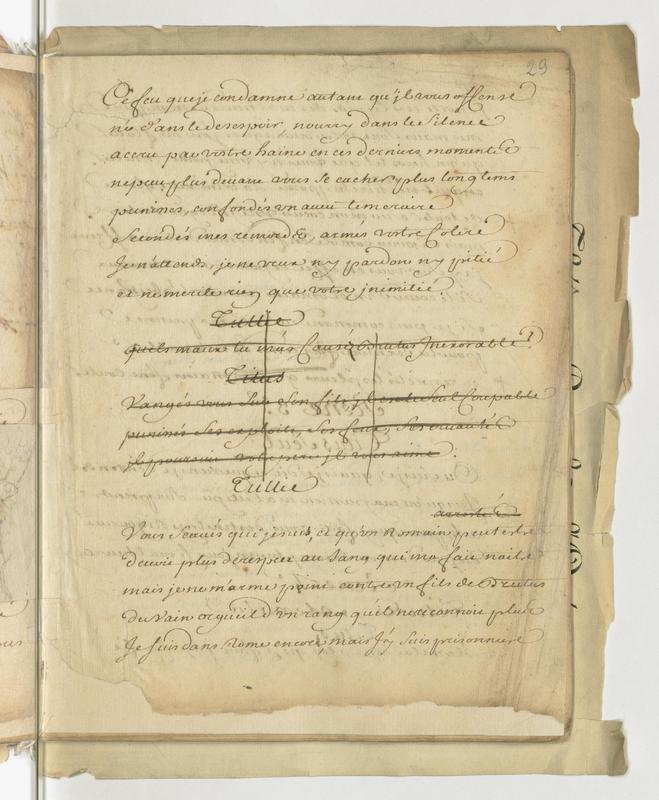 29
Ce feu que je condamne autant qu'jl vous offense
né dans le desespoir nourry dans le silence
accru par vostre haine en ces derniers moments
ne peut plus devant vous se cacher plus longtems
punissés, confondés un aveu temeraire
secondés mes remords, armés vostre colere
Je n'attends, je ne veux ny pardon ny pitié
et ne merite rien que votre jnimitié.
Tullie
quels maux tu m'as causé, Brutus Inexorable!
Titus
Vangés vous sur son fils jl est le seul coupable
punissés ses exploits, ses feux, ses cruautés
jl poursuit votre pere jl vous aime.
Tullie
arrestés
Vous scavés qui je suis, et qu'un Romain peut estre
devoit plus de respect au sang qui m'a fait naitre
mais je ne m'arme point contre un fils de Brutus
du vain orgueil d'un rang qu'il ne reconnoit plus
Je suis dans Rome encore mais j'y suis prisonniere